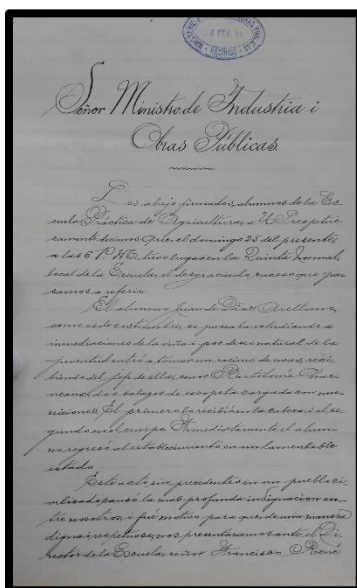 2 FEB. 9
Señor Ministro de Industria i
Obras Públicas
Los abajo firmados, alumnos de la Es-
cuela Práctica de Agricultura, a US. respetuo
samente decimos: Que, el domingo 25 del presente,
a las 6 P.M. tuvo lugar en la Quinta Normal,
local de la Escuela el desgraciado suceso que pa-
samos a referir.
El alumno Juan de Dios Arellano,
como es de costumbre, se paseaba estudiando a
inmediaciones de la viña i por deseo natural de la
juventud entró a tomar un racimo de uvas, reci-
biendo del jefe de ellas, señor Bartolomé
dos balazos de escopeta cargada con mu-
niciones. El primero lo recibió en la cabeza i el se-
gundo en el cuerpo. Inmediatamente el alum-
no regresó al establecimiento en un lamentable
estado.
Este acto sin precedentes en un pueblo ci-
vilizado causó la más profunda indignación en-
tre nosotros i fué motivo para que, de una manera
digna i respetuosa, nos presentáramos ante el Di-
rector de la Escuela señor Francisco René